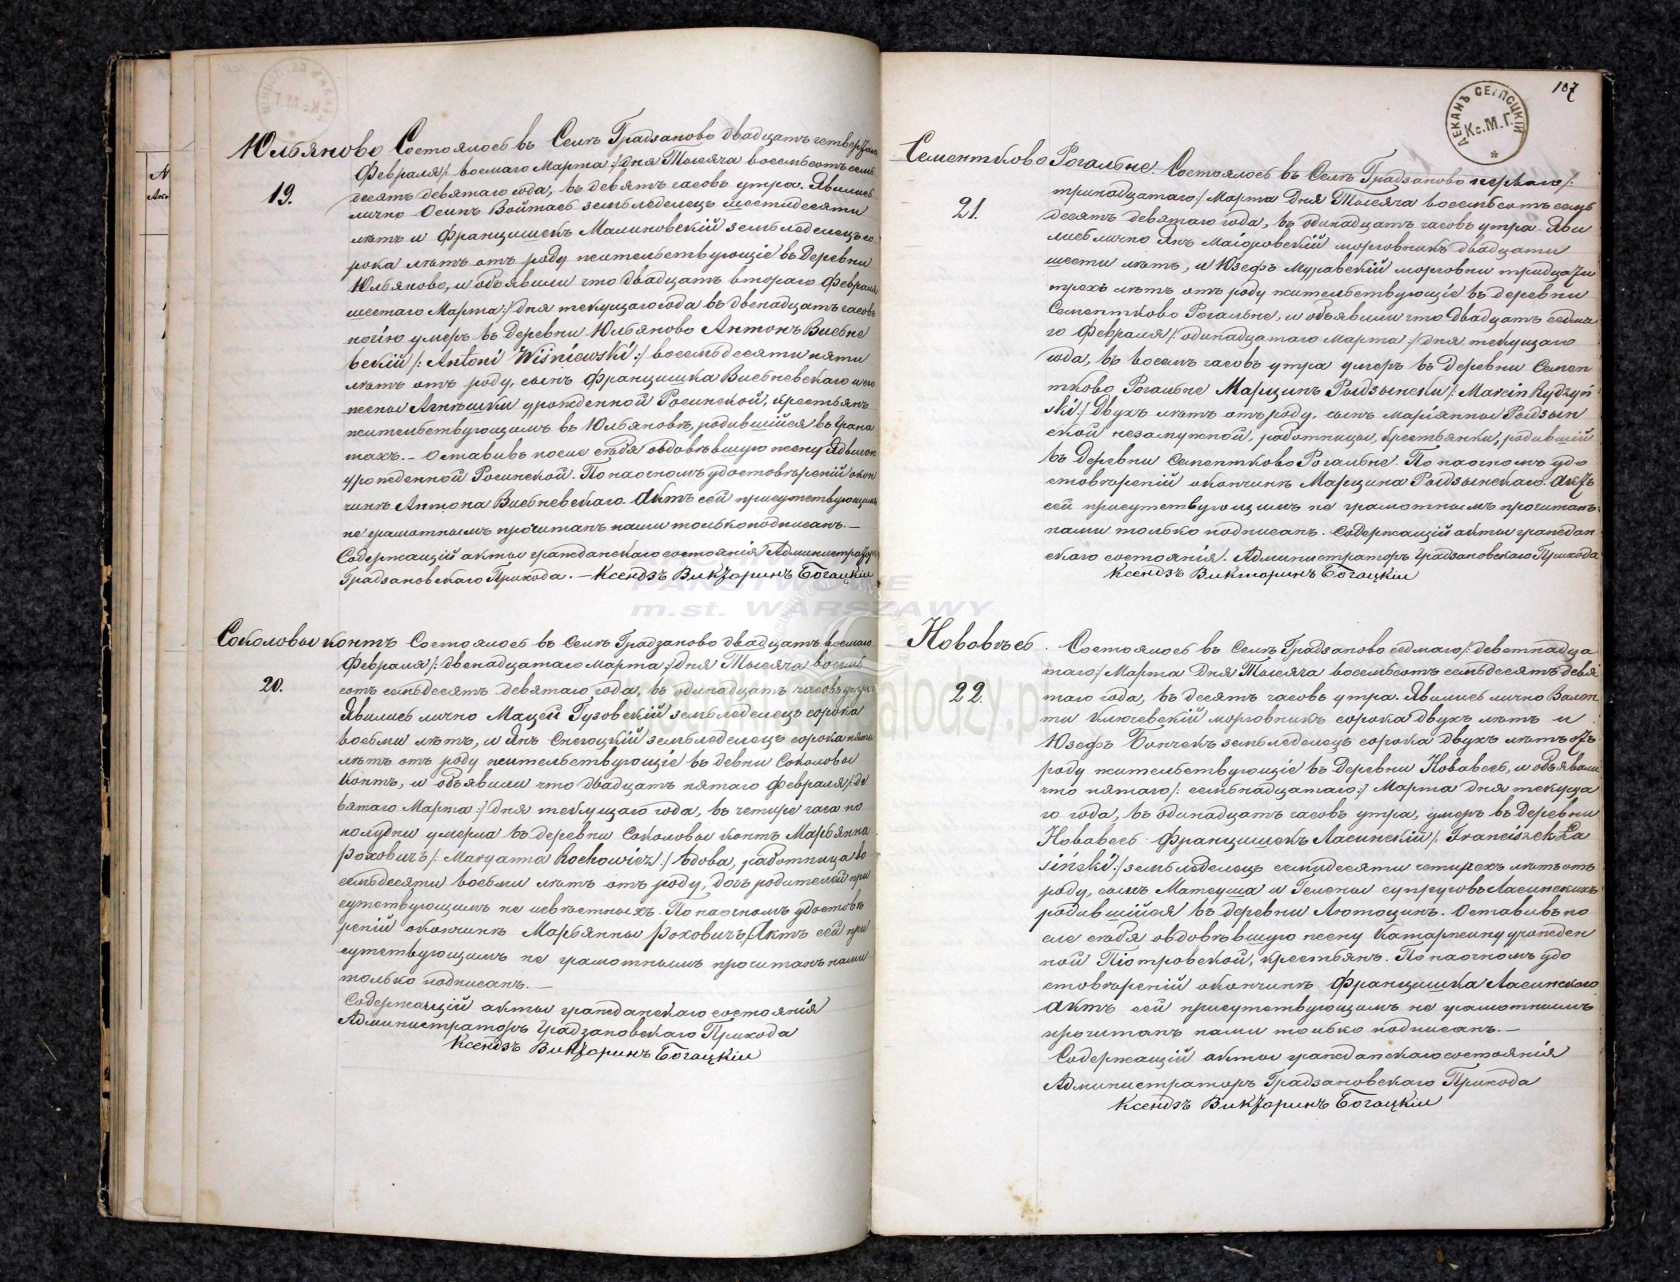 Юльяново Состоялось въ Селѣ Градзаново двадцать четвертаго
Февраля/: восмаго Марта:/ дня Тысяча восемьсотъ семь
19. десятъ девятаго года, въ девять часовъ утра. Явились
лично Осипъ Войтасъ земледелецъ шестидесяти
лѣтъ и Францишекъ Малиновскій земледелецъ со
рока лѣтъ отъ роду жительствующіе въ Деревни
Юльяново, и объявили что двадцать втораго Февраля
шестаго Марта:/ дня текущаго года въ двенадцать часовъ
ночію умеръ въ Деревни Юльяново Антонъ Висьне
вскій/: Antoni Wiśniewski:/ восемьдесяти пяти
лѣтъ отъ роду, сынъ Францишка Висьневскаго и его
жены Агнѣшки урожденной Росинской, крестьянъ
жительствующимъ въ Юльяновѣ, родившійся въ
Оставивъ после себя овдовѣвшую жену
урожденной Росинской. По наочномъ удостовѣреній окон
чинѣ Антона Висьневскаго. Актъ сей присутствующимъ
не грамотнымъ прочитанъ нами только подписанъ. —
Содержащій акты гражданскаго состоянія Администраторъ
Градзановскаго Прихода. — Ксендзъ Викторинъ Богацкіи
Соколовы контъ Состоялось въ Селѣ Градзаново двадцать восмаго
Февраля/: двенадцатаго Марта:/ дня Тысяча восемь
20. сотъ семьдесятъ девятаго года, въ одинадцать часовъ утра
Явились лично Мацей Гузовскій земледелецъ сорока
восьми лѣтъ, и Янъ Снегоцкій земледелецъ сорока пяти
лѣтъ отъ роду жительствующіе въ девни Соколовы
Контъ, и объявили что двадцать пятаго Февраля/: де
вятаго Марта:/ дня текущаго года, въ четыре часа по
полудни умерла въ деревни Соколовы Контъ Марьянна
Роховичъ/: Maryanna Rochowicz:/ вдова, работница
семьдесяти восьми лѣтъ отъ роду, дочь родителей при
сутствующимъ не извѣстныхъ. По наочномъ удостовѣ
реній окончинѣ Марьянны Роховичъ, Актъ сей при
сутствующимъ не грамотнымъ прочитанъ нами
только подписанъ. —
Содержащій акты гражданскаго состоянія
Администраторъ Градзановскаго Прихода
Ксендзъ Викторинъ Богацкіи
107
ДЕКАНЪ СЕРПСЦКІЙ
Кс. М. Г.
Сементково Рогальне. Состоялось въ Селѣ Градзаново перваго/:
тринадцатаго:/ Марта Дня Тысяча восемьсотъ семь
21. десятъ девятаго года, въ одинадцать часовъ утра. Яви
лись лично Янъ Маіоровскій морговникъ двадцати
шести лѣтъ, и Юзефъ Муравскій морговни тридцати
трехъ лѣтъ отъ роду жительствующіе въ деревни
Сементково Рогальне, и объявили что двадцать седма
го Февраля/: одинадцатаго Марта:/ дня текущаго
года, въ восемъ часовъ утра умеръ въ Деревни Семен
тково Рогальне Марцинъ Рыдзынски/: Marcin Rydzyń
ski:/ Двухъ лѣтъ отъ роду, сынъ Маріанны Рыдзын
ской незамужной, работницы, крестьянки, родившій
въ Деревни Сементково Рогальне. По наочномъ удо
стовѣреній окончинѣ Марцина Рыдзынскаго. Актъ
сей присутствующимъ не грамотнымъ прочитанъ
нами только подписанъ. Содержащій акты граждан
скаго состоянія. Администраторъ Градзановскаго Прихода
Ксендзъ Викторинъ Богацкіи
Нововѣсь. Состоялось въ Селѣ Градзаново седмаго/: девятнадца
таго:/ Марта Дня Тысяча восемьсотъ семьдесятъ девя
22. таго года, въ десять часовъ утра. Явились лично Вален
ти Ключевскій морговникъ сорока двухъ лѣтъ и
Юзефъ Бончекъ земледелецъ сорока двухъ лѣтъ отъ
роду жительствующіе въ Деревни Нововесь, и объявили
что пятаго/: семьнадцатаго:/ Марта дня текуща
го года, въ одинадцать часовъ утра, умеръ въ Деревни
Нововесь Францишекъ Ласинскій/: Franciszek Ła
siński:/ земледелецъ семидесяти четырехъ лѣтъ отъ
роду, сынъ Матеуша и Гелены супруговъ Ласинскихъ
родившійся въ деревни Лютоцинъ. Оставивъ по
сле себя овдовѣвшую жену Катаржину урожден
ной Піотровской, крестьянъ. По наочномъ удо
стовѣреній окончинѣ Францишка Ласинскаго
Актъ сей присутствующимъ не грамотнымъ
прочитанъ нами только подписанъ. —
Содержащій акты гражданскаго состоянія
Администраторъ Градзановскаго Прихода
Ксендзъ Викторинъ Богацкіи
PAŃSTWOWE
m.st. WARSZAWY